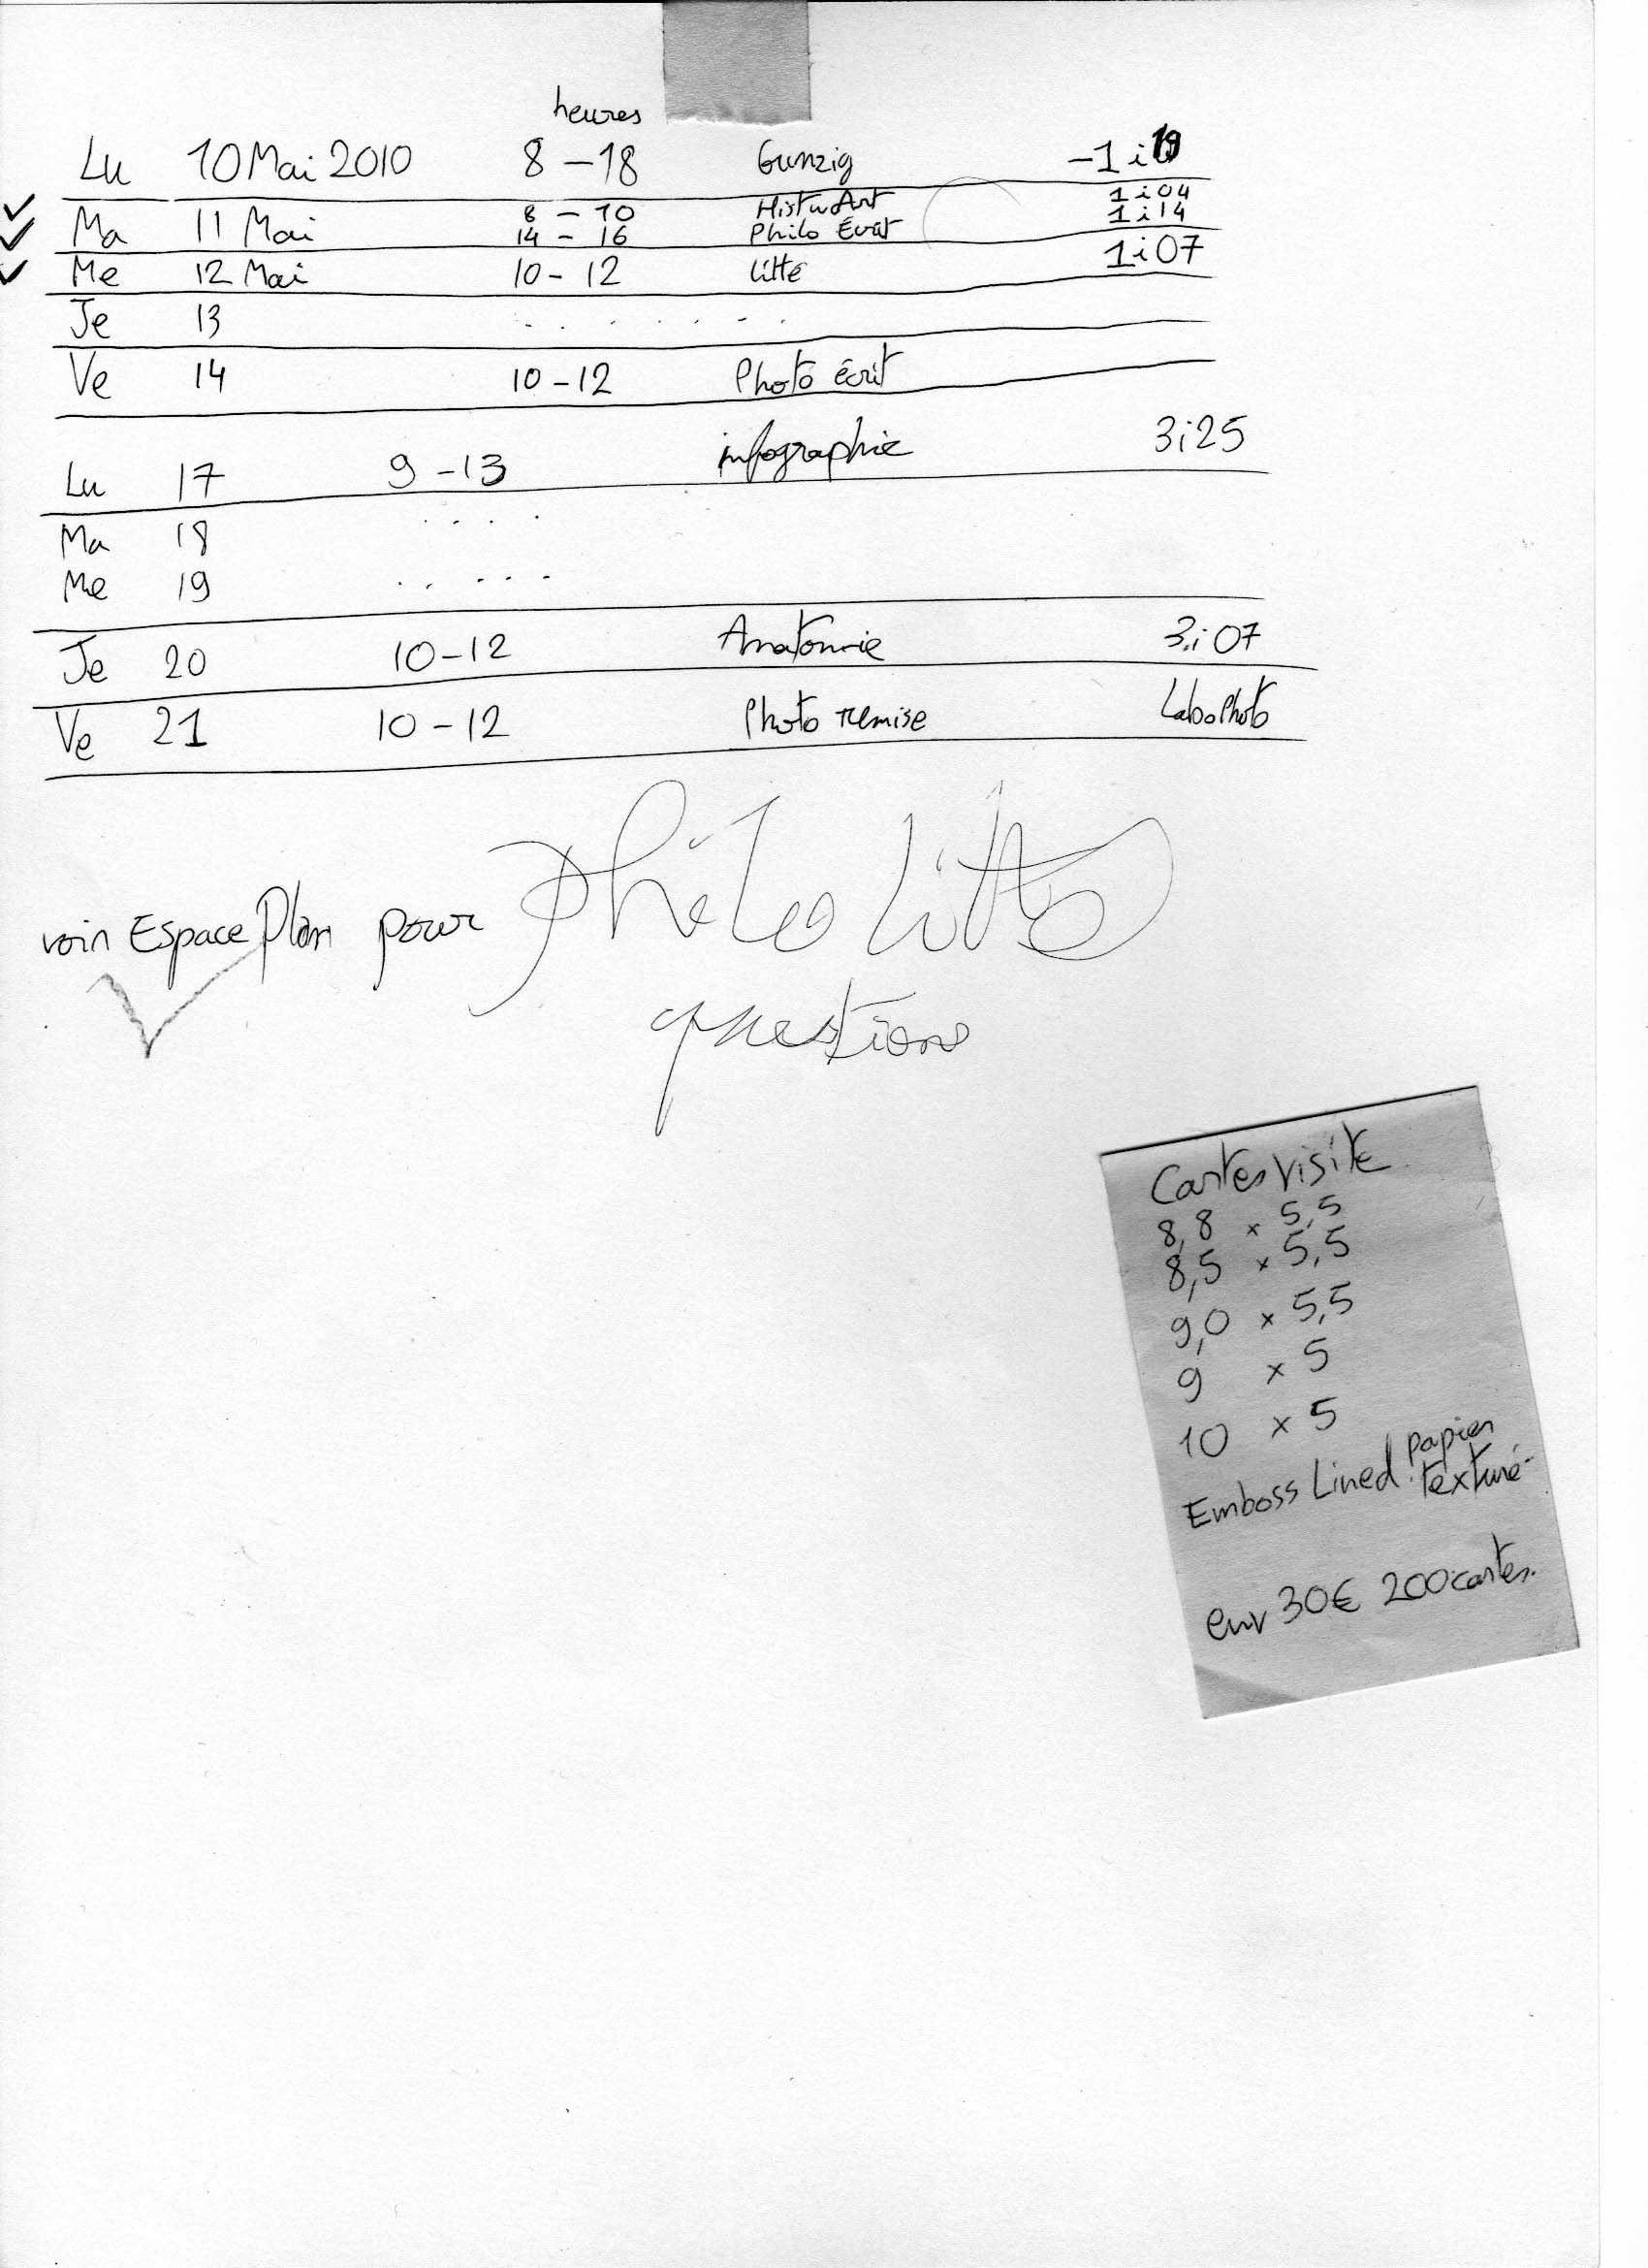 heures
Lu 10 Mai 2010 8 - 18 Gunzig
8 - 10 Hist Art 1i04
Ma 11 Mai 14 - 16 Philo Écrit 1i14
Me 12 Mai 10 - 12 Litté 1i07
Je 13
Ve 14 10 - 12 Photo écrit
Lu 17 9 - 13 infographie 3i25
Ma 18
Me 19
Je 20 10 - 12 Anatomie 3i07
Ve 21 10 - 12 Photo remise Labo Photo
voir Espace Plan pour Philo Litt
questions
Cartes Visite
8,8 x 5,5
8,5 x 5,5
9,0 x 5,5
9 x 5
10 x 5
Emboss Lined papier
texturé
env 30€ 200 cartes.